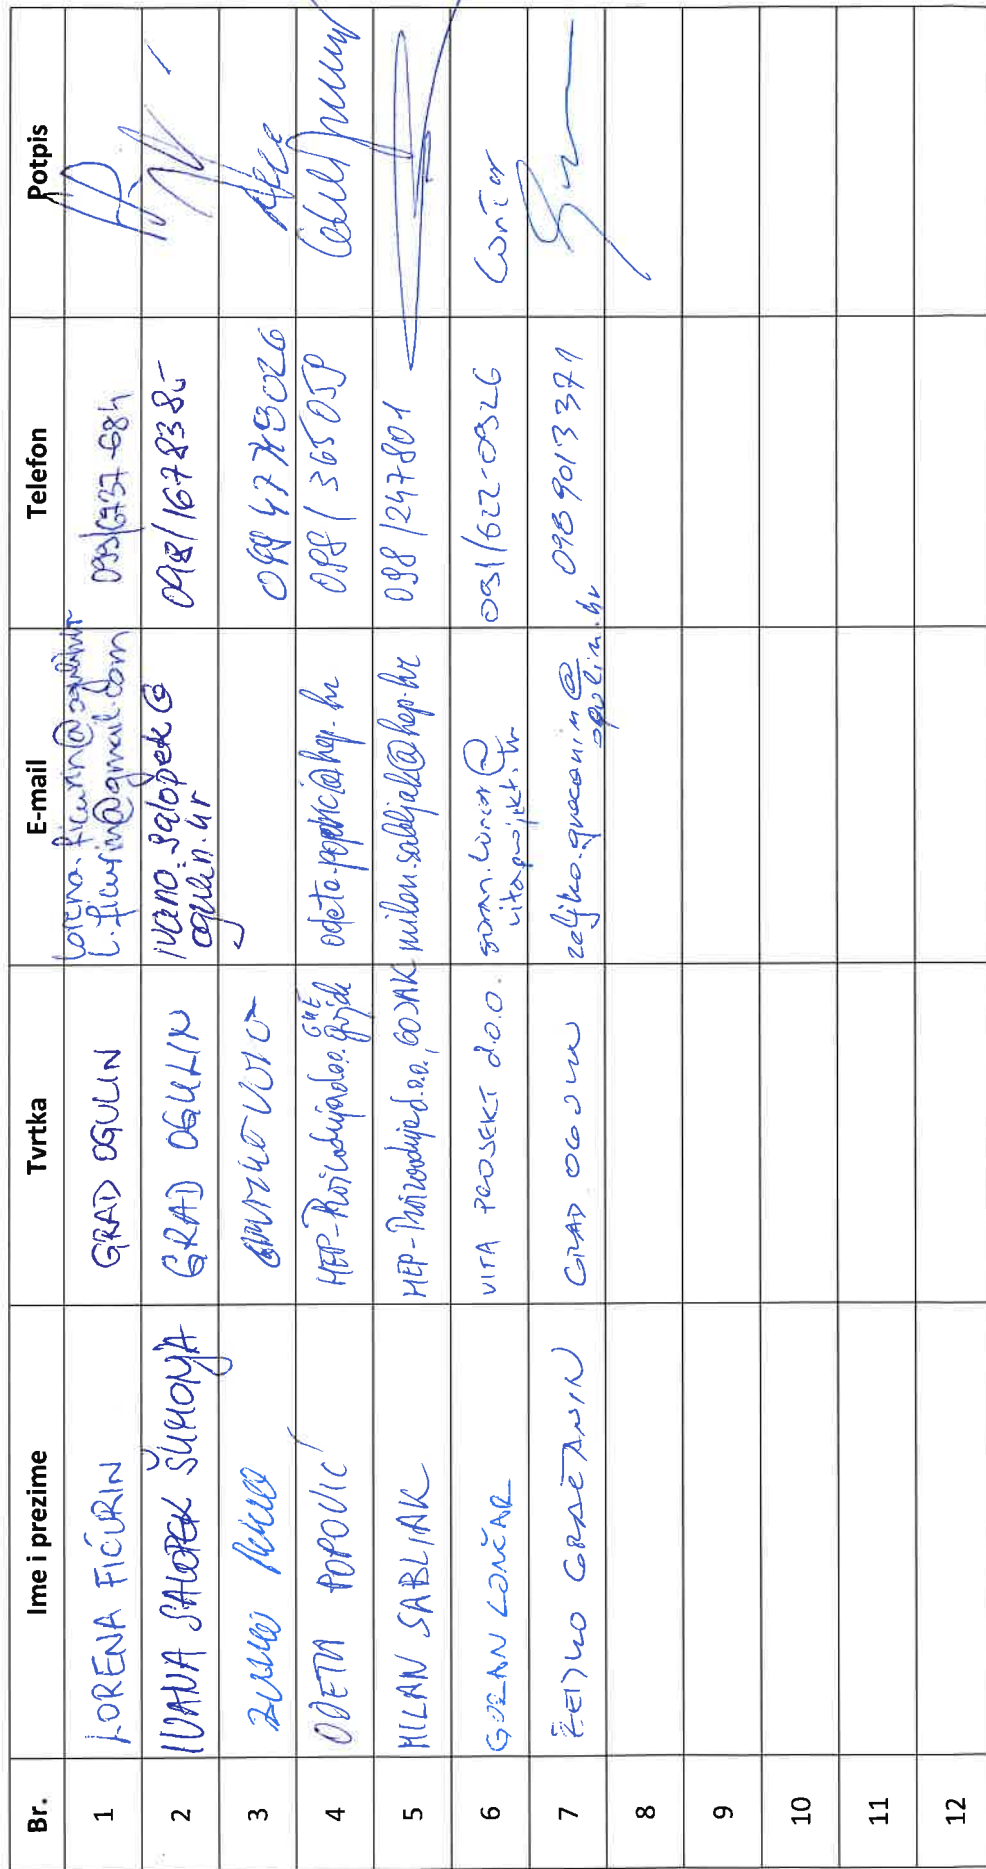 Br. Ime i prezime Tvrtka E-mail Telefon Potpis
1 LORENA FICURIN GRAD OGULIN lorena.ficurin@ogulin.hr
l.ficurin@gmail.com
2 IVANA SALOPEK ŠUMONJA GRAD OGULIN ivana.salopek@
ogulin.hr 098/1678385
3
4 ODETA POPOVIĆ HEP-Proizvodnja d.o.o. GHE Gojak odeta.popovic@hep.hr 098/365059
5 MILAN SABLJAK HEP-Proizvodnja d.o.o., GOJAK milan.sabljak@hep.hr 098/247801
6 GORAN LONČAR VITA PROJEKT d.o.o. goran.loncar@
vitaprojekt.hr 091/622-0926 Lončar
7 ŽELJKO GRAČANIN GRAD OGULIN zeljko.gracanin@
ogulin.hr 098 9013371
8
9
10
11
12